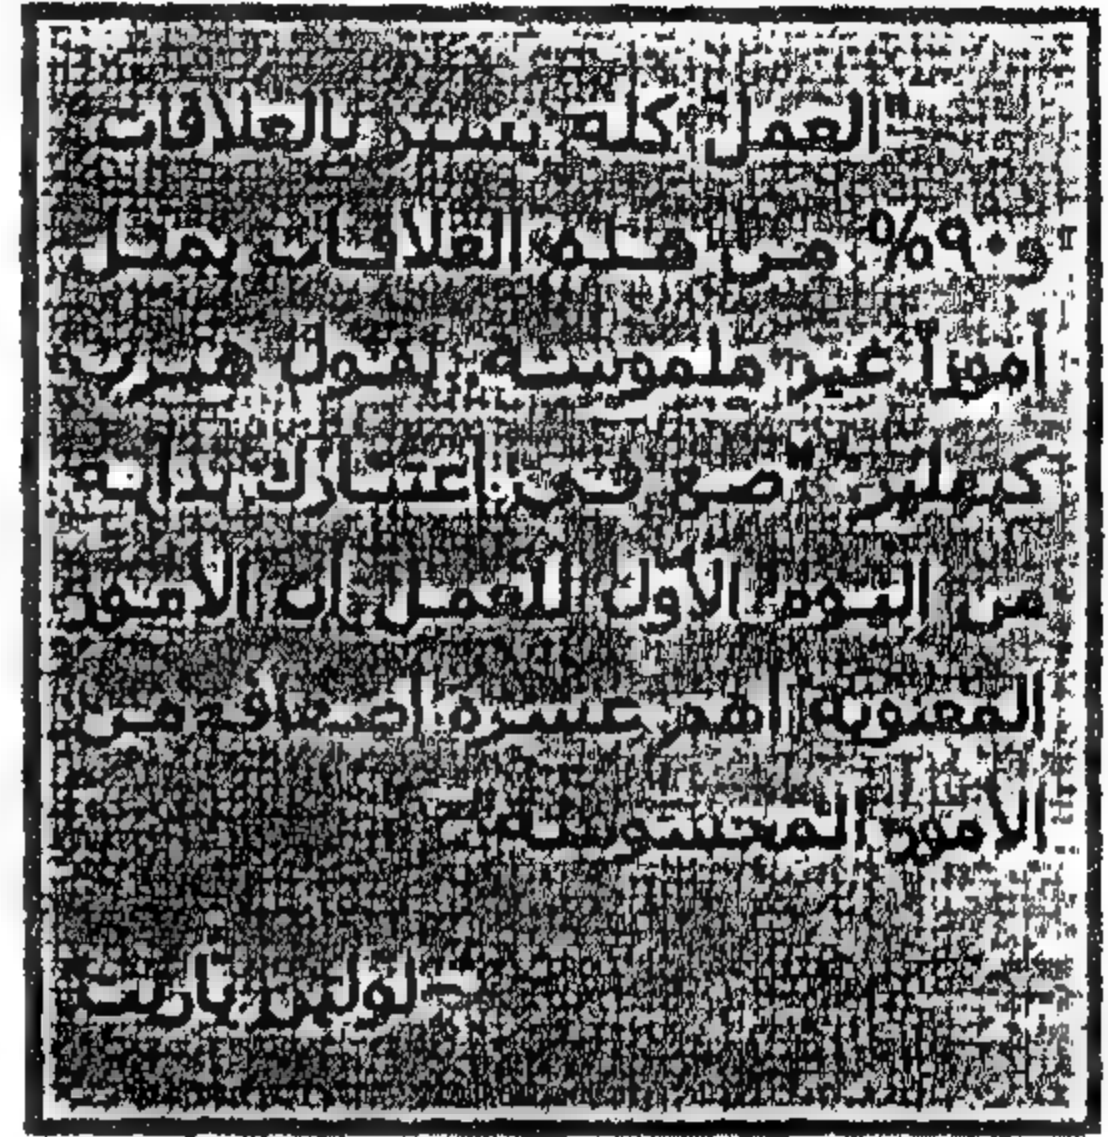 "العمل كله يسير بالعلاقات
و٩٠% من هذه العلاقات يمثل
أمورا غير ملموسة. يقول هيرب
كيلير "ضع في اعتبارك بداية
من اليوم الأول للعمل أن الأمور
المعنوية أهم عشرة أضعاف من
الأمور المحسوسة".
- لورين باريت